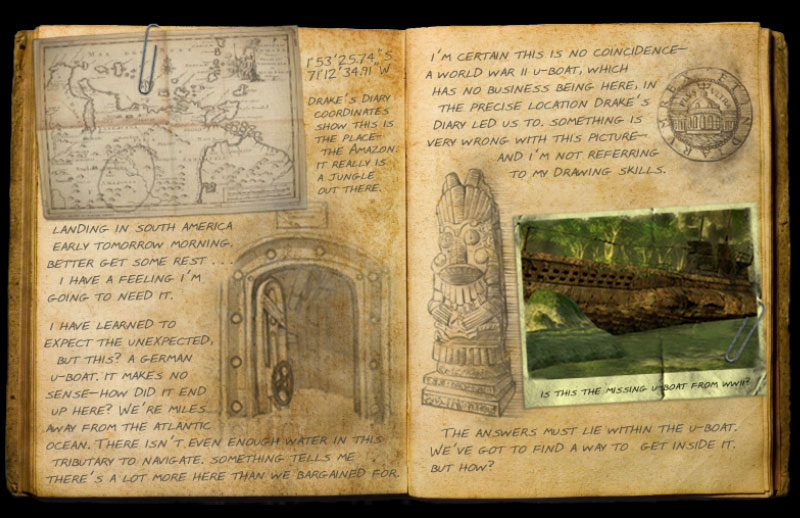 1°53'25.74."S
71°12'34.91"W
DRAKE'S DIARY
COORDINATES
SHOW THIS IS
THE PLACE–
THE AMAZON.
IT REALLY IS
A JUNGLE
OUT THERE.
LANDING IN SOUTH AMERICA
EARLY TOMORROW MORNING.
BETTER GET SOME REST . . .
I HAVE A FEELING I'M
GOING TO NEED IT.
I HAVE LEARNED TO
EXPECT THE UNEXPECTED,
BUT THIS? A GERMAN
U-BOAT. IT MAKES NO
SENSE–HOW DID IT END
UP HERE? WE'RE MILES
AWAY FROM THE ATLANTIC
OCEAN. THERE ISN'T EVEN ENOUGH WATER IN THIS
TRIBUTARY TO NAVIGATE. SOMETHING TELLS ME
THERE'S A LOT MORE HERE THAN WE BARGAINED FOR.
I'M CERTAIN THIS IS NO COINCIDENCE–
A WORLD WAR II U-BOAT, WHICH
HAS NO BUSINESS BEING HERE, IN
THE PRECISE LOCATION DRAKE'S
DIARY LED US TO. SOMETHING IS
VERY WRONG WITH THIS PICTURE–
AND I'M NOT REFERRING
TO MY DRAWING SKILLS.
IS THIS THE MISSING U-BOAT FROM WWII?
THE ANSWERS MUST LIE WITHIN THE U-BOAT.
WE'VE GOT TO FIND A WAY TO GET INSIDE IT.
BUT HOW?